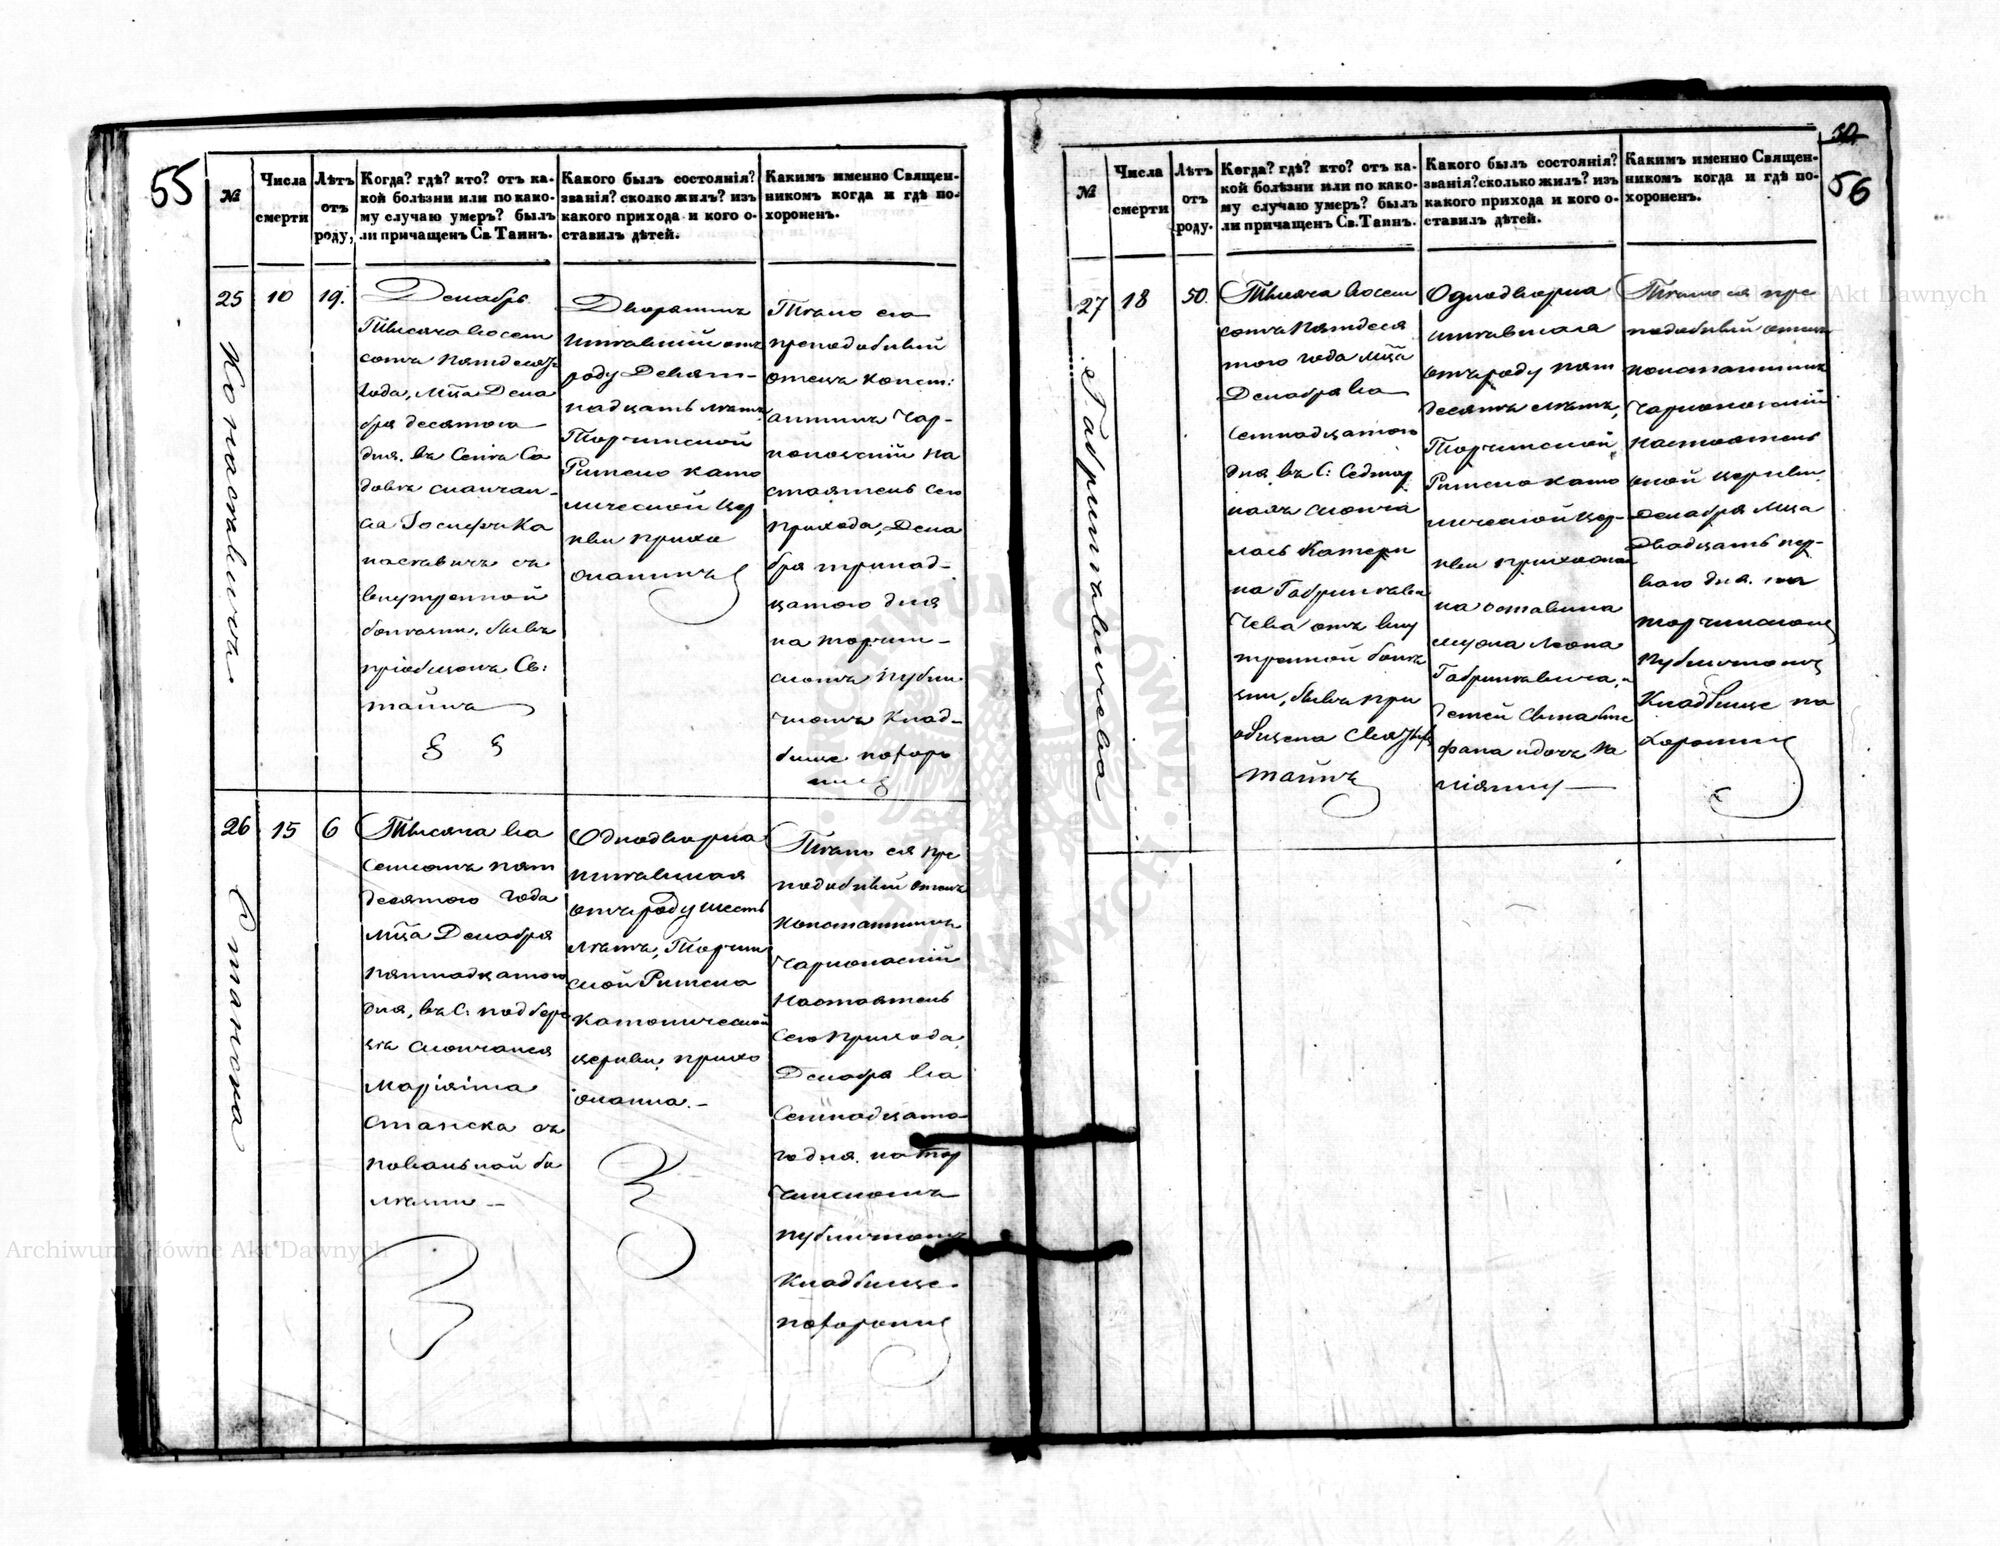 55
№
Числа
смерти
Лѣтъ
отъ
роду,
Когда? гдѣ? кто? отъ ка-
кой болѣзни или по како-
му случаю умеръ? былъ
ли причащенъ Св. Таинъ.
Какого былъ состоянія?
званія? сколко жилъ? изъ
какого прихода и кого о-
ставилъ дѣтей.
Какимъ именно Священ-
никомъ когда и гдѣ по-
хороненъ.
25
10
19.
Декабрь
Тысяча восем
сотъ
года, Мца Дека
бря десятого
дня. въ
скончал-
ся Іосифъ Ка
наставичъ съ
внутренной
болѣзни. бывъ
пріобщонъ Св:
Тайнъ
Дворянинъ
отъ
роду Девят-
надцать лѣтъ
Торчинской
Римско като
лической цер
кви прихо
жанинъ
Тѣло его
преподобный
отецъ Конст:
антинъ Чар-
поновскій На
стоятель сего
прихода, Дека
бря тринад-
цатого дня
на торчин-
скомъ публи
чномъ клад-
бище похоро
26
15
6
Станска
Тысяча во
семсотъ пят
десятого года
Мца Декабря
пятнадцатого
дня, въ С. подбере
скончался
Маріяна
Станска съ
повальной бо
лѣзни
Однодворка
отъ роду шесть
лѣтъ, Торчин
ской Римско
католической
церкви прихо
жанка.
Тѣло ея пре
подобный отецъ
Константинъ
Настоятель
сего прихода
Декабря во
семнадцато
го дня. на тор
чинскомъ
публичномъ
кладбище
56
№
Числа
смерти
Лѣтъ
отъ
роду.
Когда? гдѣ? кто? отъ ка-
кой болѣзни или по како-
му случаю умеръ? былъ
ли причащенъ Св. Таинъ.
Какого былъ состоянія?
званія? сколько жилъ? изъ
какого прихода и кого о-
ставилъ дѣтей.
Какимъ именно Священ-
никомъ когда и гдѣ по-
хороненъ.
27
18
50.
Габрилевичева
Тысяча восем
сотъ пятдеся
того года Мца
Декабря во
семнадцатого
дня въ С:
сконча
лась Катери
на Габрилеви
чева отъ вну
тренной болѣ
зни, бывъ при
общена
тайнъ
Однодворка
отъ роду пят
десятъ лѣтъ,
Торчинской
Римско като
лической цер-
кви прихожан
ка оставила
мужа Леона
Габрилевича,
детей сына Сте
фана и дочь
Тѣло ея пре
подобный отецъ
Константинъ
Настоятель
церкви
Декабря Мца
Двадцать пер-
вого дня. на
торчинском
публичном
кладбище по
Archiwum Główne Akt Dawnych
Archiwum Główne Akt Dawnych
ARCHIWUM GŁÓWNE AKT DAWNYCH